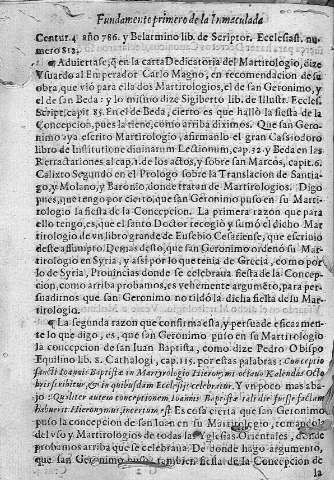 Fundamento primero de la Inmaculada
Centur. 4 año 786. y Belarmino lib. de Scriptor. Ecclesiast. nu-
mero 812.
¶ Aduiertase, q̃ en la carta Dedicatoria del Martirologio, dize
Vsuardo al Emperador Carlo Magno, en recomendacion de su
obra, que vió para ella dos Martirologios, el de san Geronimo, y
el de san Beda: y lo mismo dize Sigiberto lib. de Illustr. Eccles.
Script. capit. 85. En el de Beda, cierto es que halló la fiesta de la
Concepcion, pues la tiene, como arriba diximos. Que san Gero-
nimo aya escrito Martirologio, afirmanlo el gran Cassiodoro
libro de Institutione diuinarum Lectionum, cap. 32. y Beda en las
Retractationes al cap. 1. de los actos, y sobre san Marcos, capit. 6.
Calixto Segundo en el Prologo sobre la Translacion de Santia-
go, y Molano, y Baronio, donde tratan de Martirologios. Digo
pues, que tengo por cierto, que san Geronimo puso en su Marti-
rologio la fiesta de la Concepcion. La primera razon que para
ello tengo, es, que el santo Doctor recogió y sumó el dicho Mar-
tirologio de vn libro grande de Eusebio Cesariense, que escriuió
deste assumpto. Demas desto, que san Geronimo ordenó su Mar-
tirologio en Syria, y assi por lo que tenia de Grecia, como por
lo de Syria, Prouincias donde se celebraua fiesta de la Concep-
cion, como arriba probamos, es vehemente argumẽto, para per-
suadirnos que san Geronimo no tildó la dicha fiesta de su Mar-
tirologio.
¶ La segunda razon que confirma esta, y persuade eficazmen-
te lo que digo, es, que san Geronimo puso en su Martirologio
la concepcion de san Iuan Baptista, como dize Pedro Obispo
Equilino lib. 8. Cathalogi, cap. 115. por estas palabras: Conceptio
sancti Ioannis Baptistæ in Martyrologio Hieronymi octauo Kalendas Octo
bris scribitur, & in quibusdam Ecclesijs celebratur. Y vn poco mas aba
jo: Qualiter autem conceptionem Ioannis Baptistæ tali die fuisse factam
habuerit Hieronymus, incertum est. Es cosa cierta que san Geronimo
puso la concepcion de san Iuan en su Martirologio, tomandola
del vso y Martirologios de todas las Yglesias Orientales, donde
probamos arriba que se celebraua. De donde hago argumento,
que san Geronimo tambien fiesta de la Concepcion de
la